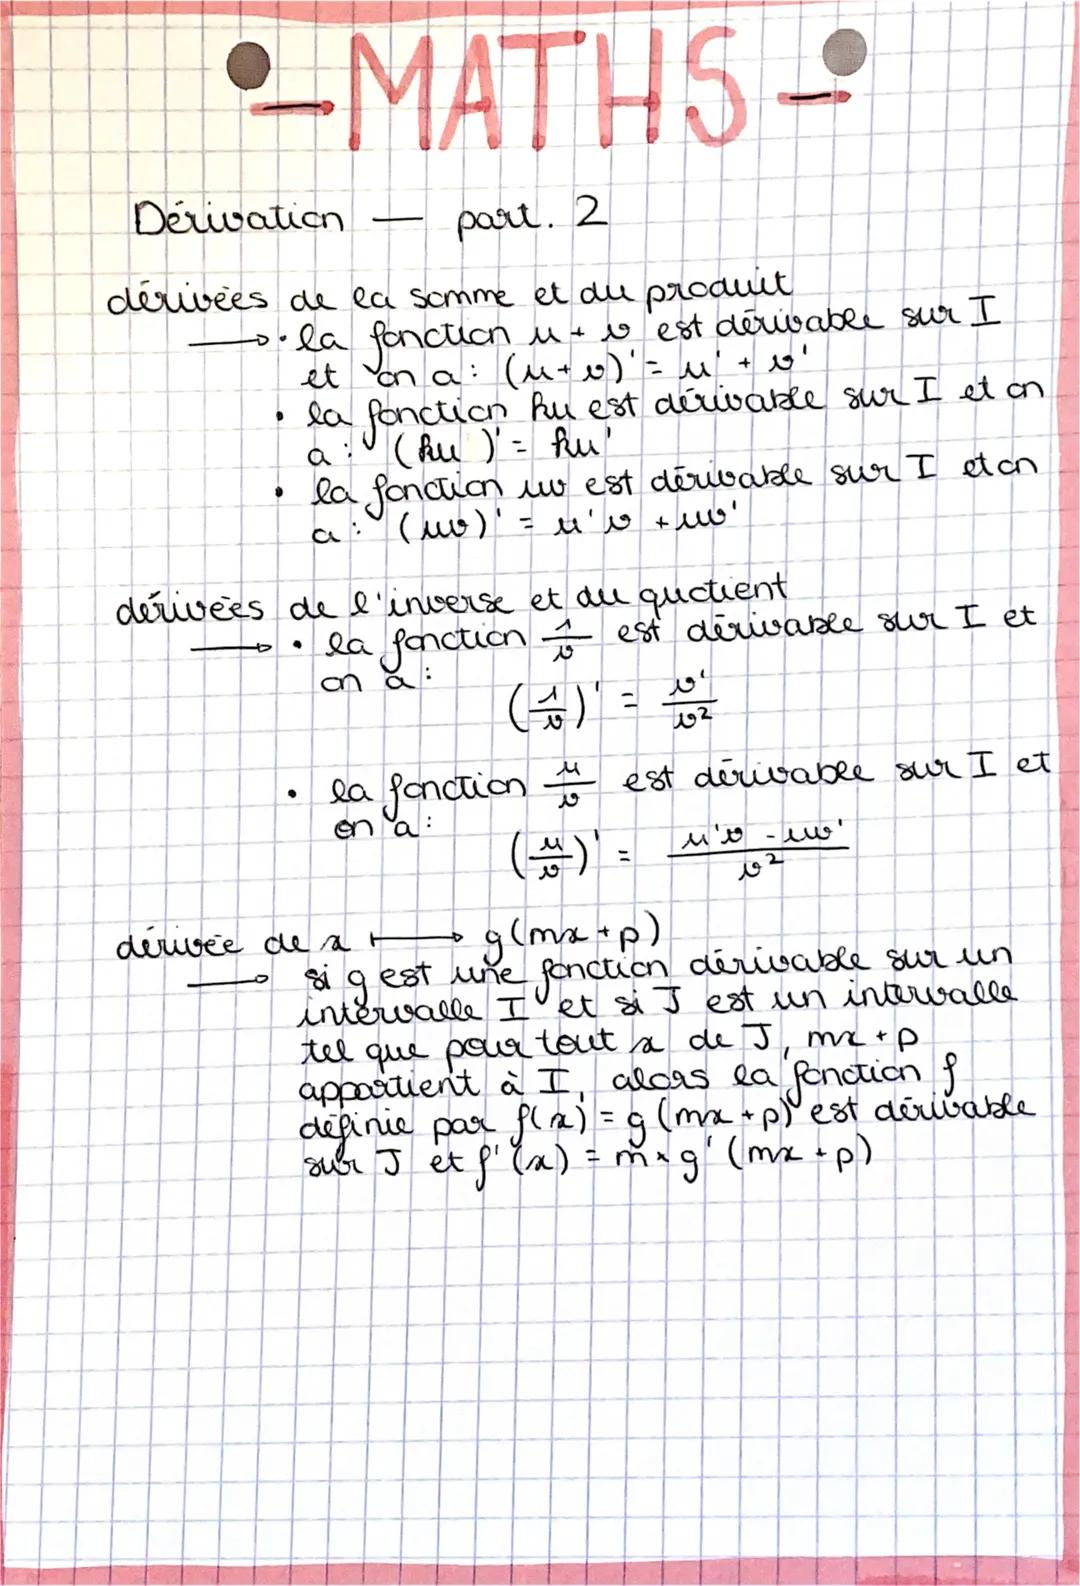 - MATHS -
Dérivation — part. 2
dérivées de la somme et du produit
→ • la fonction u + v est dérivable sur I
et on a : (u+v)' = u' + v'
• la fonction ku est dérivable sur I et on
a : (ku)' = ku'
• la fonction uv est dérivable sur I et on
a : (uv)' = u'v + uv'
dérivées de l'inverse et du quotient
→ • la fonction 1/v est dérivable sur I et
on a :
(1/v)' = v'/v²
• la fonction u/v est dérivable sur I et
on a :
(u/v)' = (u'v - uv')/v²
dérivée de x ⟼ g(mx+p)
→ si g est une fonction dérivable sur un
intervalle I et si J est un intervalle
tel que pour tout x de J, mx + p
appartient à I, alors la fonction f
définie par f(x) = g(mx+p) est dérivable
sur J et f'(x) = m×g'(mx+p)